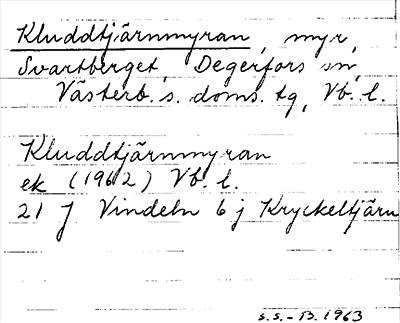 Kluddtjärnmyran, myr,
Svartberget, Degerfors sn,
Västerb. s. doms. tg, Vb. l.
Kluddtjärnmyran
ek (1962) Vb. l.
21 J Vindeln 6 j Kryckeltjärn
S.S.-B. 1963